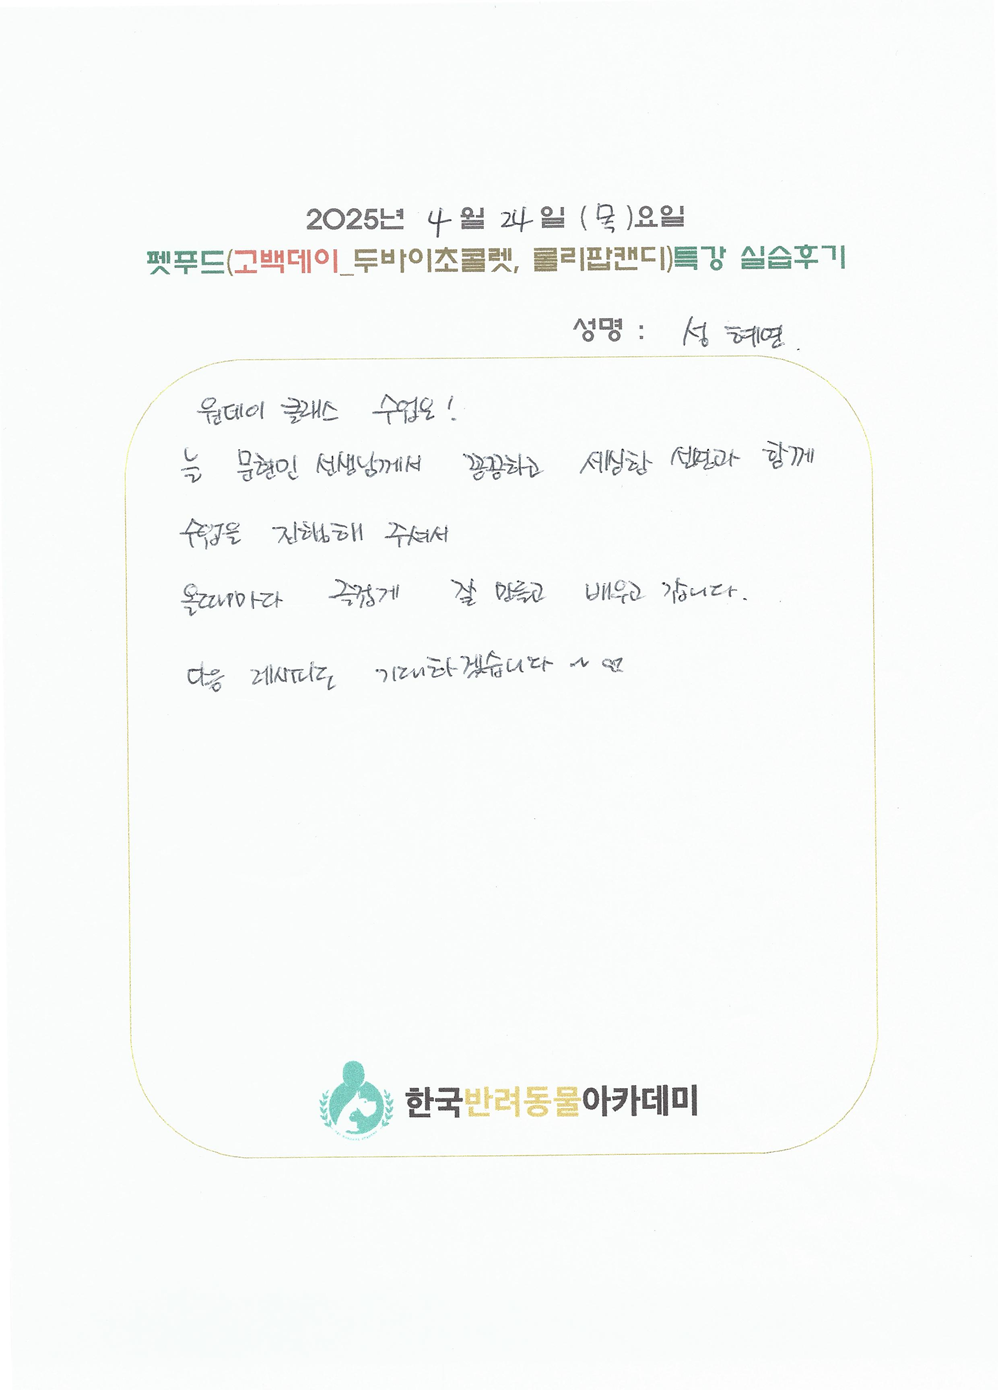 2025년 4월 24일 (목)요일
펫푸드(고백데이_두바이초콜렛, 롤리팝캔디)특강 실습후기
성명 : 성혜연.
원데이 클래스 수업은!
늘 문현민 선생님께서 꼼꼼하고 세심한 설명과 함께
수업을 진행해 주셔서
올때마다 즐겁게 잘 만들고 배우고 갑니다.
다음 레시피도 기대하겠습니다 ~
한국반려동물아카데미